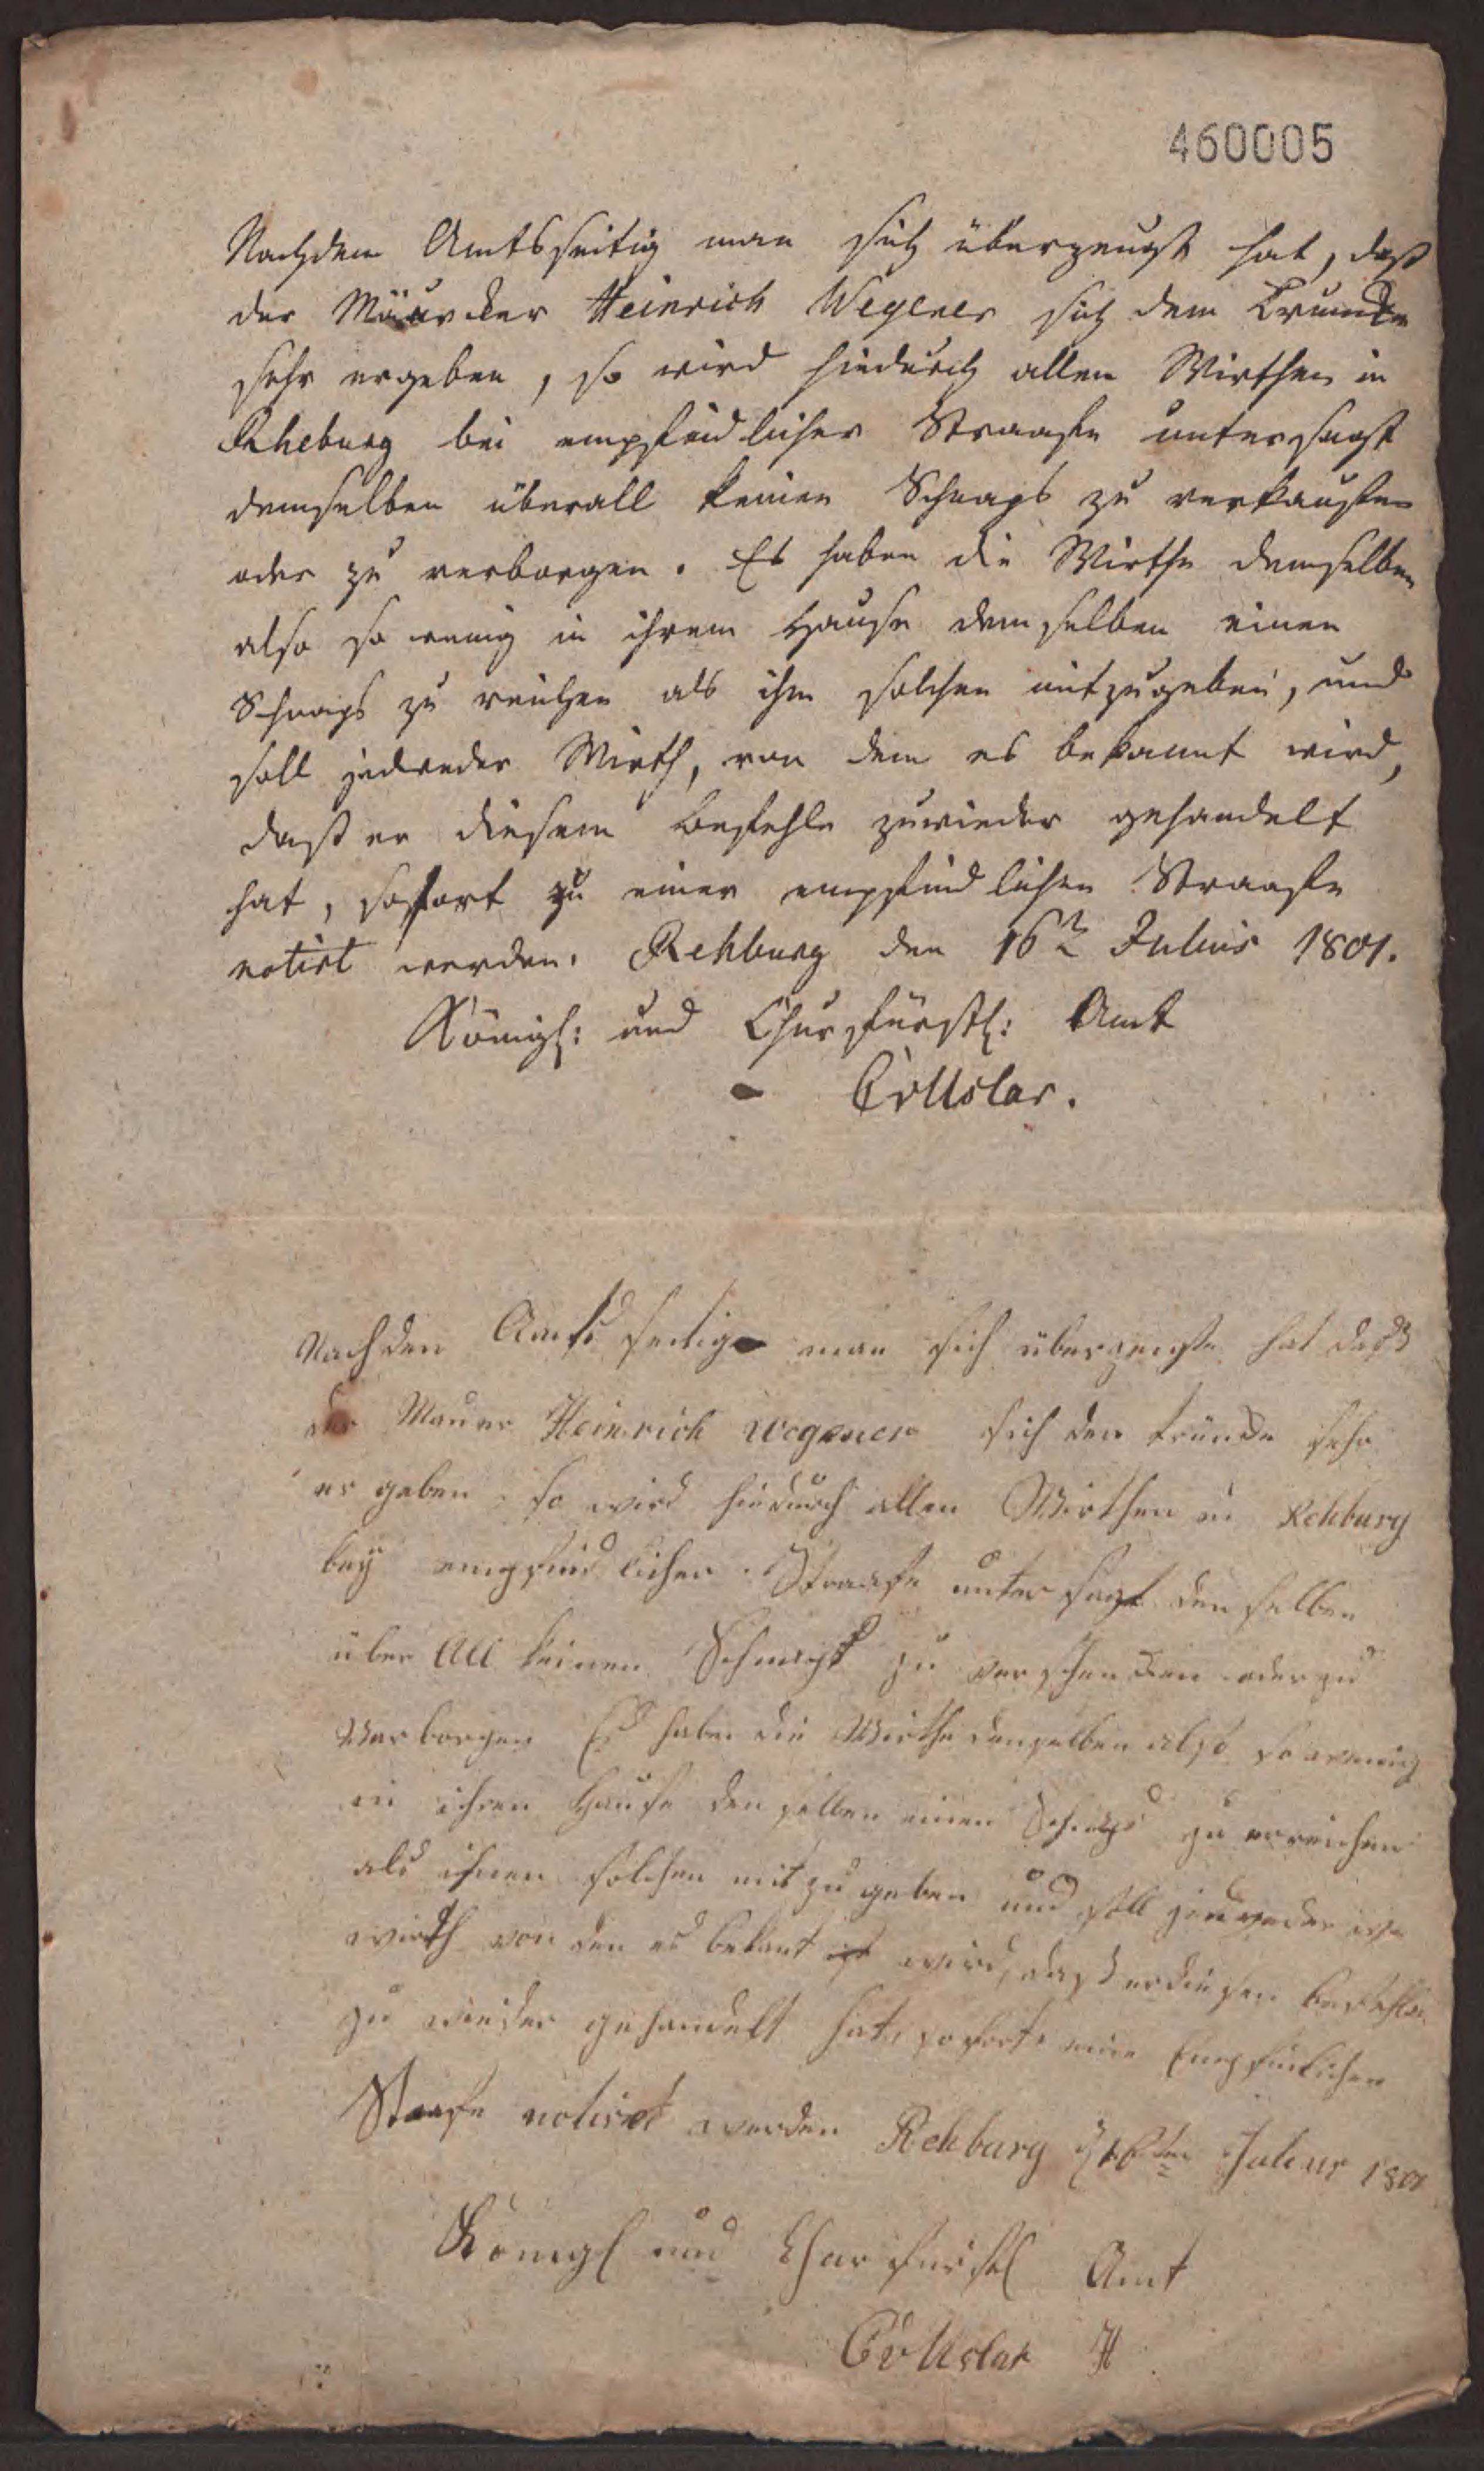 460005
Nachdem Amtsseitig man sich überzeugt hat, daß
der Mäurcker Heinrich Wegener sich dem Trunke
sehr ergeben, so wird hiedurch allen Wirthen in
Rheburg bei empfindlicher Straafe untersagt
demselben überall keinen Schnaps zu verkaufen
oder zu verborgen. Es haben die Wirthe demselben
also so wenig in ihrem Hause demselben einen
Schnaps zu reichen als ihm solchen mitzugeben, und
soll jedweder Wirth, von dem es bekannt wird,
daß er diesem Befehle zuwieder gehandelt
hat, sofort zu einer empfindlichen Straafe
notirt werden. Rehburg den 16ten Julius 1801.
Königl: und Churfürstl: Amt
CvUslar.
Nach den Amts seitig man sich überzeugt hat daß
der Maurer Heinrich Wegener sich den trunke sehr
er geben so wird hiedurch allen Wirthen in Rehburg
bey empfindlicher Straafe unter sagt den selben
über All keinen Schnaps zu verschencken oder zu
Verborgen Es haben die Wirthe denselben also so wenig
in ihren Hause den selben einen Schnaps zu erreichen
als ihnen solchen mit zu geben und soll jedweder
wirth von den es bekant wird, daß er diesen befehle
zu wieder gehandelt hat, sofort eine Empfinlichen
Straafe notiret werden Rehburg d 16ten Julius 1801
Königl und Churfürstl Amt
CvUslar